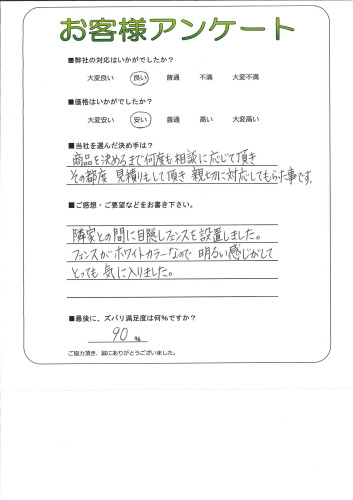 お客様アンケート
■弊社の対応はいかがでしたか？
大変良い 良い 普通 不満 大変不満
■価格はいかがでしたか？
大変安い 安い 普通 高い 大変高い
■当社を選んだ決め手は？
商品を決めるまで何度も相談に応じて頂き
その都度 見積りもして頂き 親切に対応してもらった事です。
■ご感想・ご要望などをお書き下さい。
隣家との間に目隠しフェンスを設置しました。
フェンスがホワイトカラーなので 明るい感じがして
とっても 気に入りました。
■最後に、ズバリ満足度は何％ですか？
90 %
ご協力頂き、誠にありがとうございました。